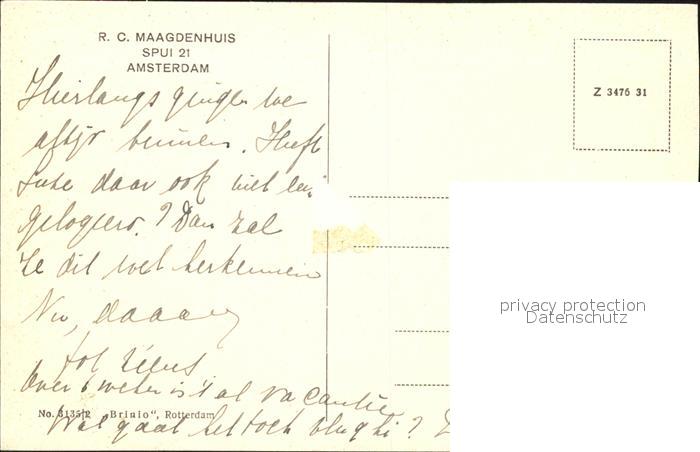 R. C. MAAGDENHUIS
SPUI 21
AMSTERDAM
Z 3476 31
Hierlangs gingen we
altijd binnen. Heeft
daar ook niet
gelogeerd? Dan zal
ze dit wel herkennen
Nu, daaag
tot ziens
Over 6 weken is 't al vacantie
Wat gaat het toch vlug hè?
No. 3135/2 „Brinio", Rotterdam
privacy protection
Datenschutz